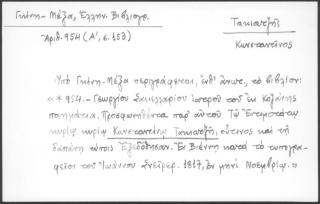 Γκίνη - Μέξα, Ἑλλην. Βιβλιογρ.
Ἀριθ. 954 (Α', σ. 153)
Τακιατζῆς
Κωνσταντῖνος
Ὑπὸ Γκίνη - Μέξα περιγράφεται, ἔνθ' ἄνωτ., τὸ βιβλίον:
«* 954. - Γεωργίου Σακελλαρίου ἰατροῦ τοῦ ἐκ Κοζάνης
ποιημάτια. Προσφωνηθέντα παρ' αὐτοῦ Τῷ Ἐντιμοτάτῳ
κυρίῳ κυρίῳ Κωνσταντίνῳ Τακιατζῇ, οὗτινος καὶ τῇ
δαπάνῃ τύποις Ἐξεδόθησαν. Ἐν Βιέννῃ κατὰ τὸ τυπογρα-
φεῖον τοῦ Ἰωάννου Σνείρερ. 1817, ἐν μηνὶ Νοεμβρίῳ.»